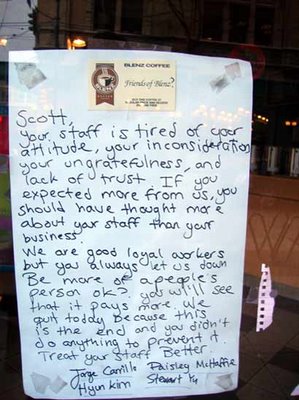 BLENZ COFFEE
Friends of Blenz?
BLENZ
Scott,
your staff is tired of your
attitude, your inconsideration
your ungratefulness, and
lack of trust. If you
expected more from us, you
should have thought more
about your staff than your
business.
We are good loyal workers
but you always let us down
Be more of a people's
person ok? you will see
that it pays more. We
quit today because this
is the end and you didn't
do anything to prevent it.
Treat your staff Better.
Jorge Carrillo Paisley McHaffie
Hyun Kim Stewart Yu